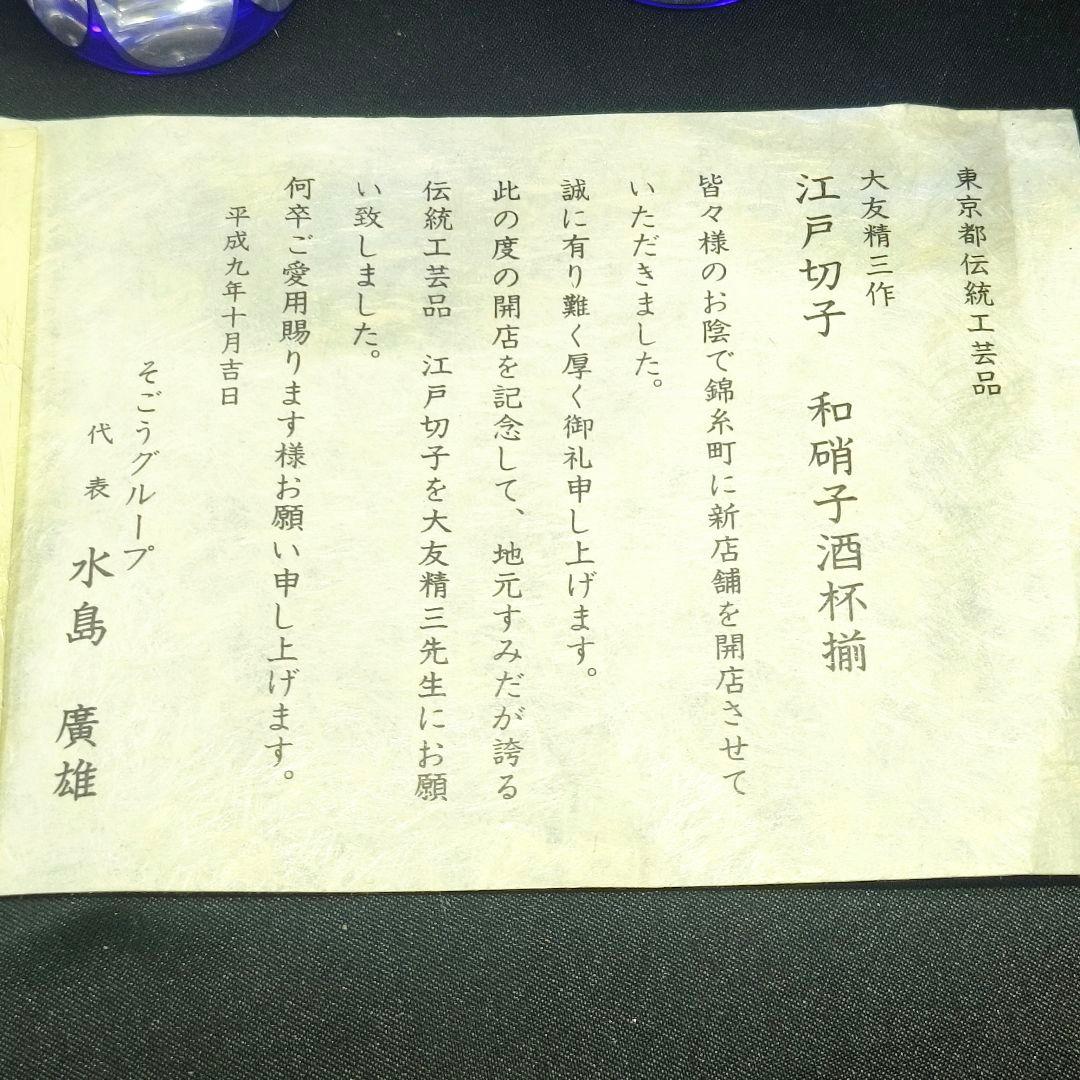 東京都伝統工芸品
大友精三作
江戸切子　和硝子酒杯揃
皆々様のお陰で錦糸町に新店舗を開店させて
いただきました。
誠に有り難く厚く御礼申し上げます。
此の度の開店を記念して、地元すみだが誇る
伝統工芸品　江戸切子を大友精三先生にお願
い致しました。
何卒ご愛用賜ります様お願い申し上げます。
平成九年十月吉日
そごうグループ
代表　水島　廣雄